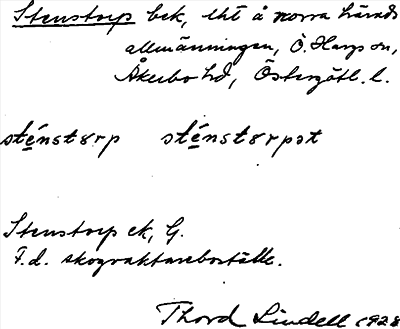 Stenstorp bek, lht å norra härads
allmänningen, Ö. Hargs sn,
Åkerbo hd, Östergötl. l.
sténstørp sténstørpət
Stenstorp ek, G.
F.d. skogvaktareboställe.
Thord Lindell 1928